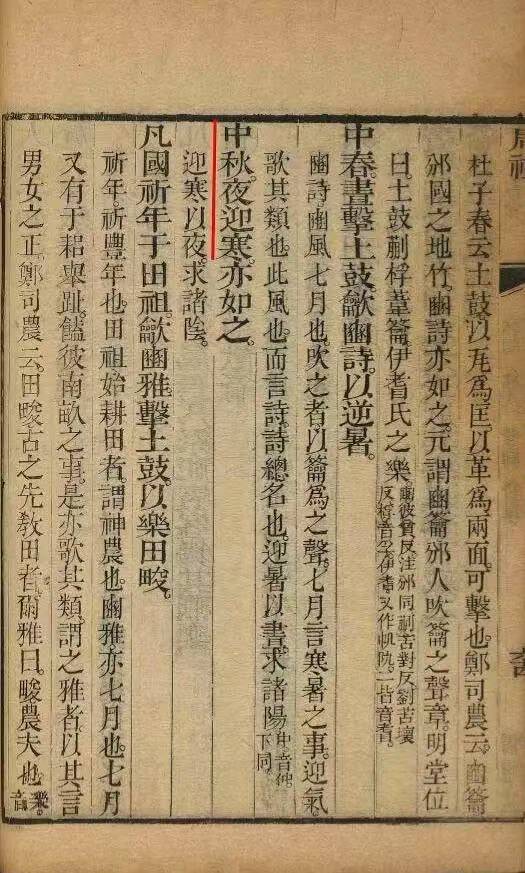 周禮
杜子春云土鼓以瓦爲匡以革爲兩面可擊也鄭司農云豳籥
邠國之地竹豳詩亦如之元謂豳籥邠人吹籥之聲章明堂位
曰土鼓蒯桴葦籥伊耆氏之樂
豳彼貧反注邠同蒯苦對反劉苦壞
反桴音孚伊耆又作帆阮二皆音耆
中春晝擊土鼓龡豳詩以逆暑
豳詩豳風七月也吹之者以籥爲之聲七月言寒暑之事迎氣
歌其類也此風也而言詩詩總名也迎暑以晝求諸陽
中音仲
下同
中秋夜迎寒亦如之
迎寒以夜求諸陰
凡國祈年于田祖龡豳雅擊土鼓以樂田畯
祈年祈豐年也田祖始耕田者謂神農也豳雅亦七月也七月
又有于耜舉趾饁彼南畝之事是亦歌其類謂之雅者以其言
男女之正鄭司農云田畯古之先教田者爾雅曰畯農夫也
樂
音